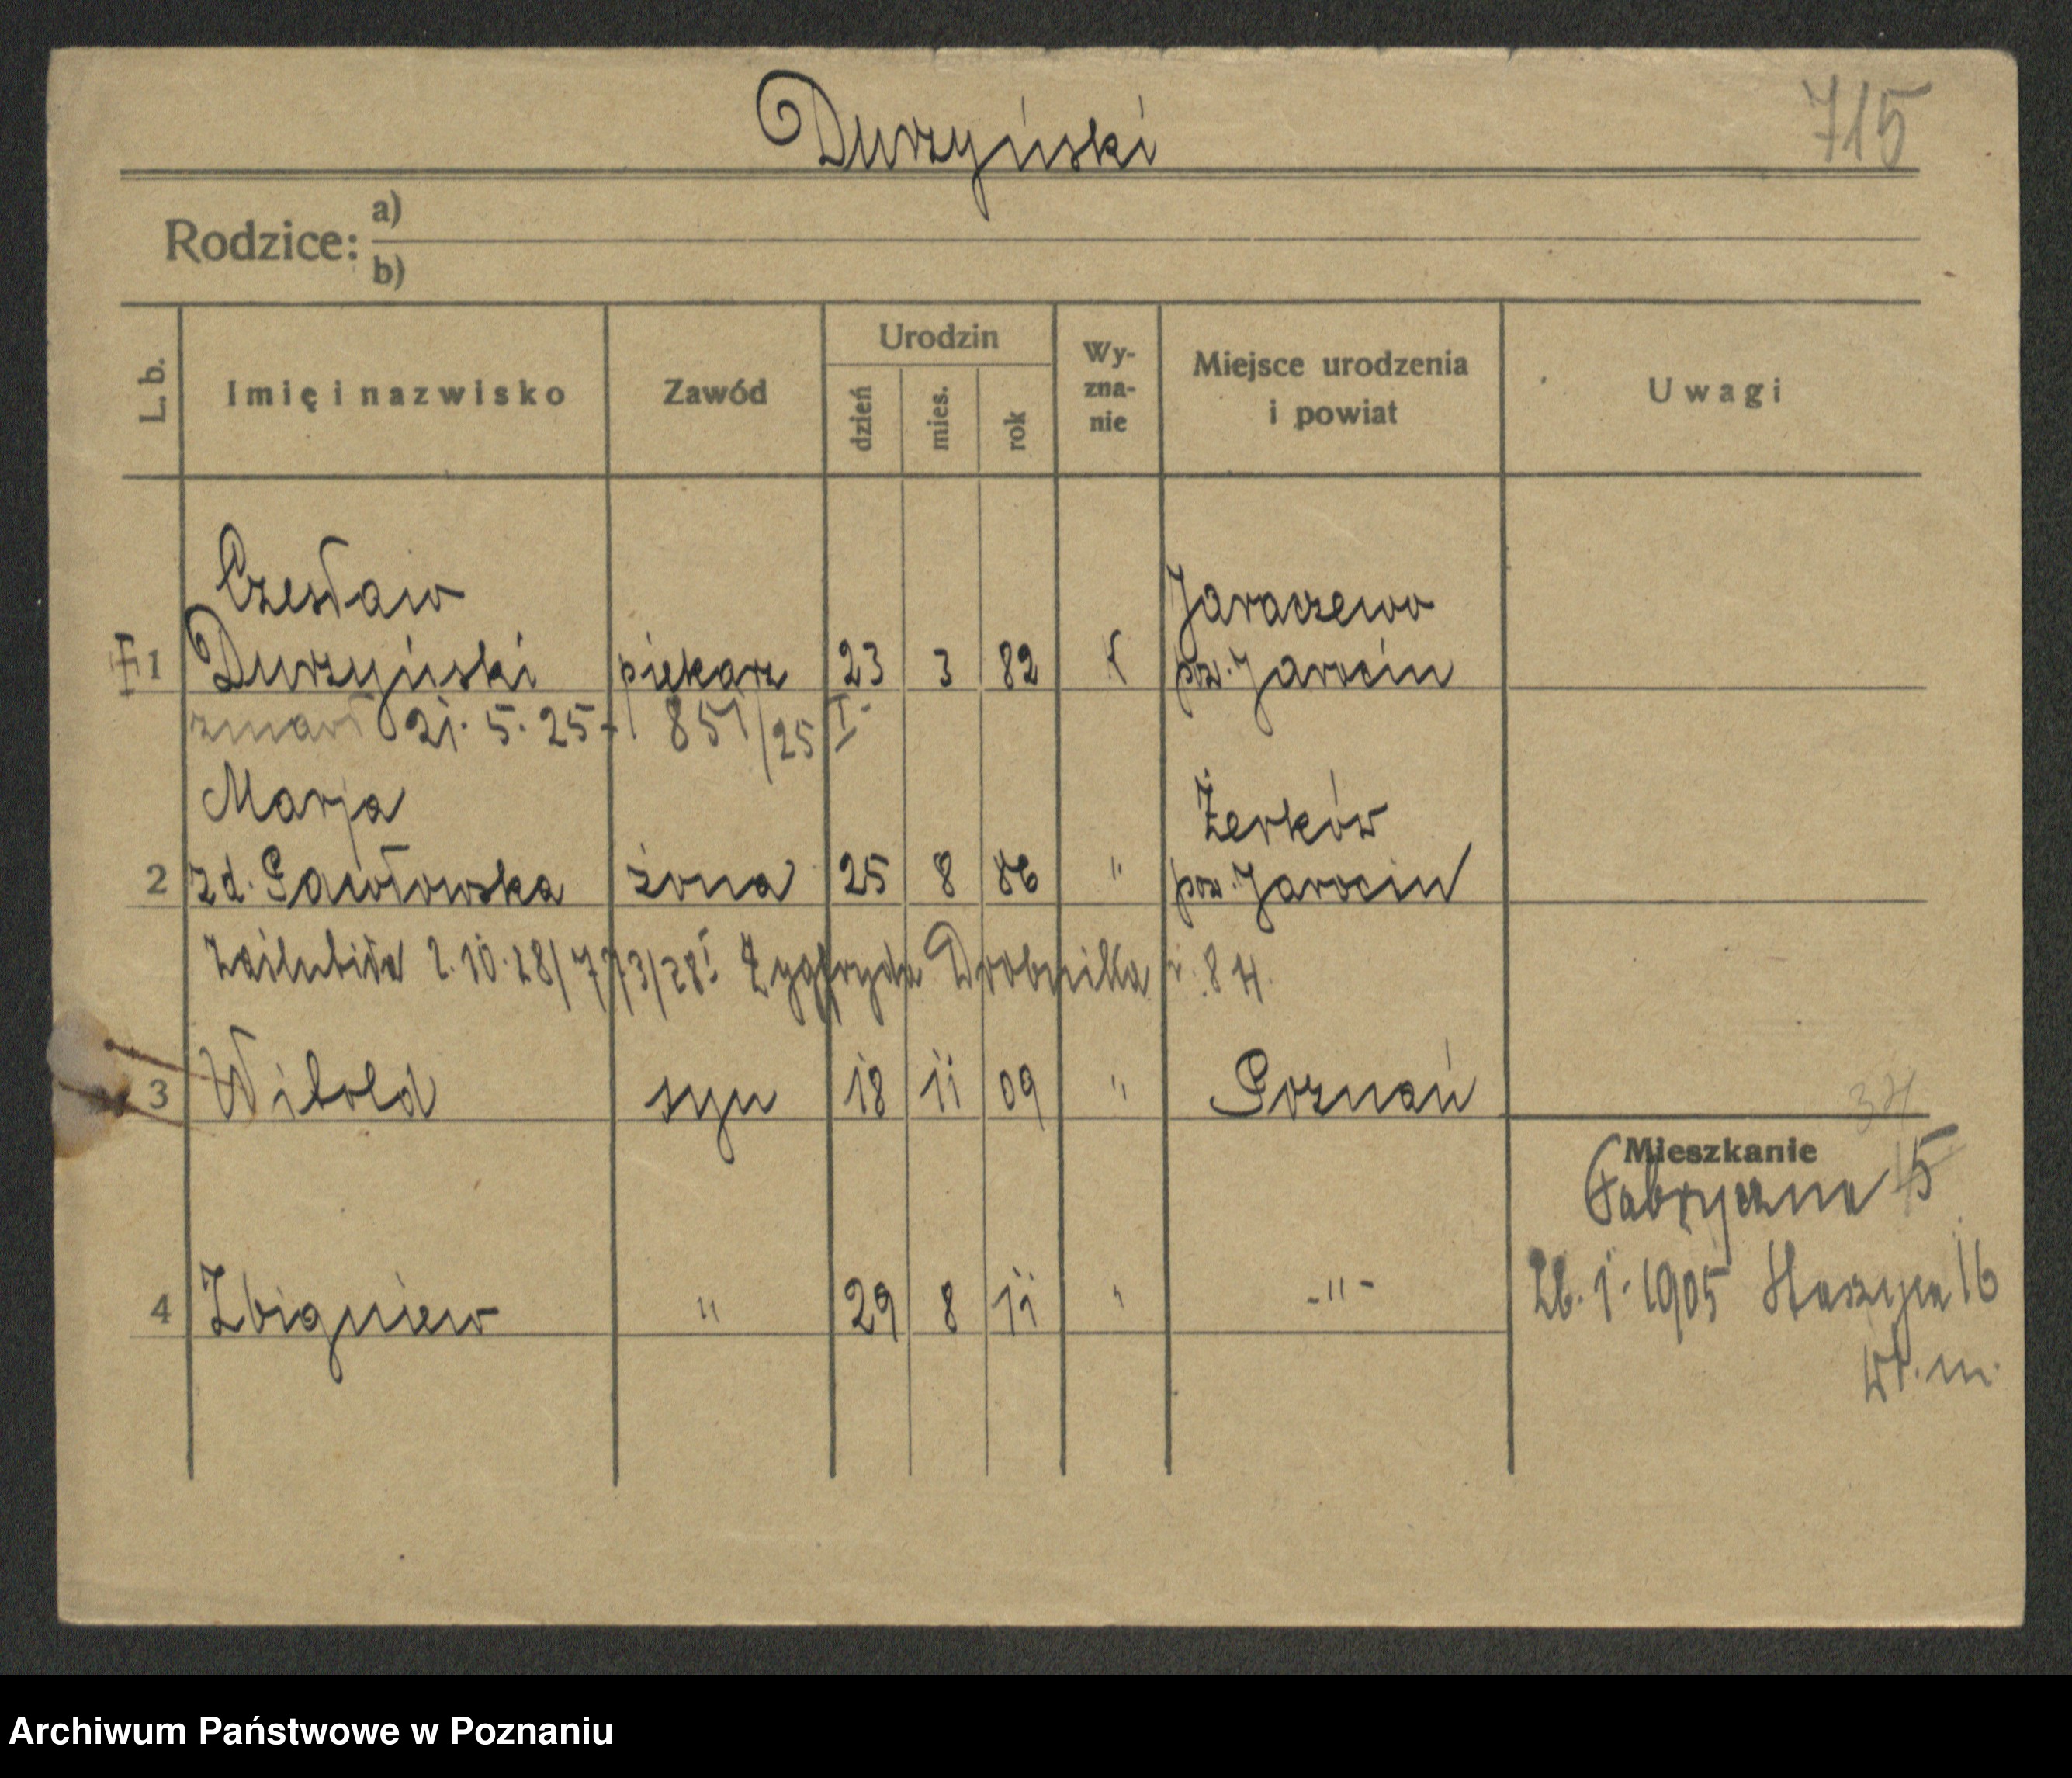 Durzyński 715
Rodzice: a)
b)
L. b. Imię i nazwisko Zawód Urodzin dzień mies. rok Wy-zna-nie Miejsce urodzenia i powiat Uwagi
Czesław Jaraczewo
1 Durzyński piekarz 23 3 82 k pow. Jarocin
zmarł 21. 5. 25 - 851/25 I.
Marja Żerków
2 zd. Gawłowska żona 25 8 86 " pow. Jarocin
zaślubiła 2.10.28/773/28 I Zygfryda Drobnika 84.
3 Witold syn 18 11 09 " Poznań
34
Mieszkanie
Fabryczna 15
4 Zbigniew " 29 8 11 " -"-
26. 1. 1905 16
w. m.
Archiwum Państwowe w Poznaniu